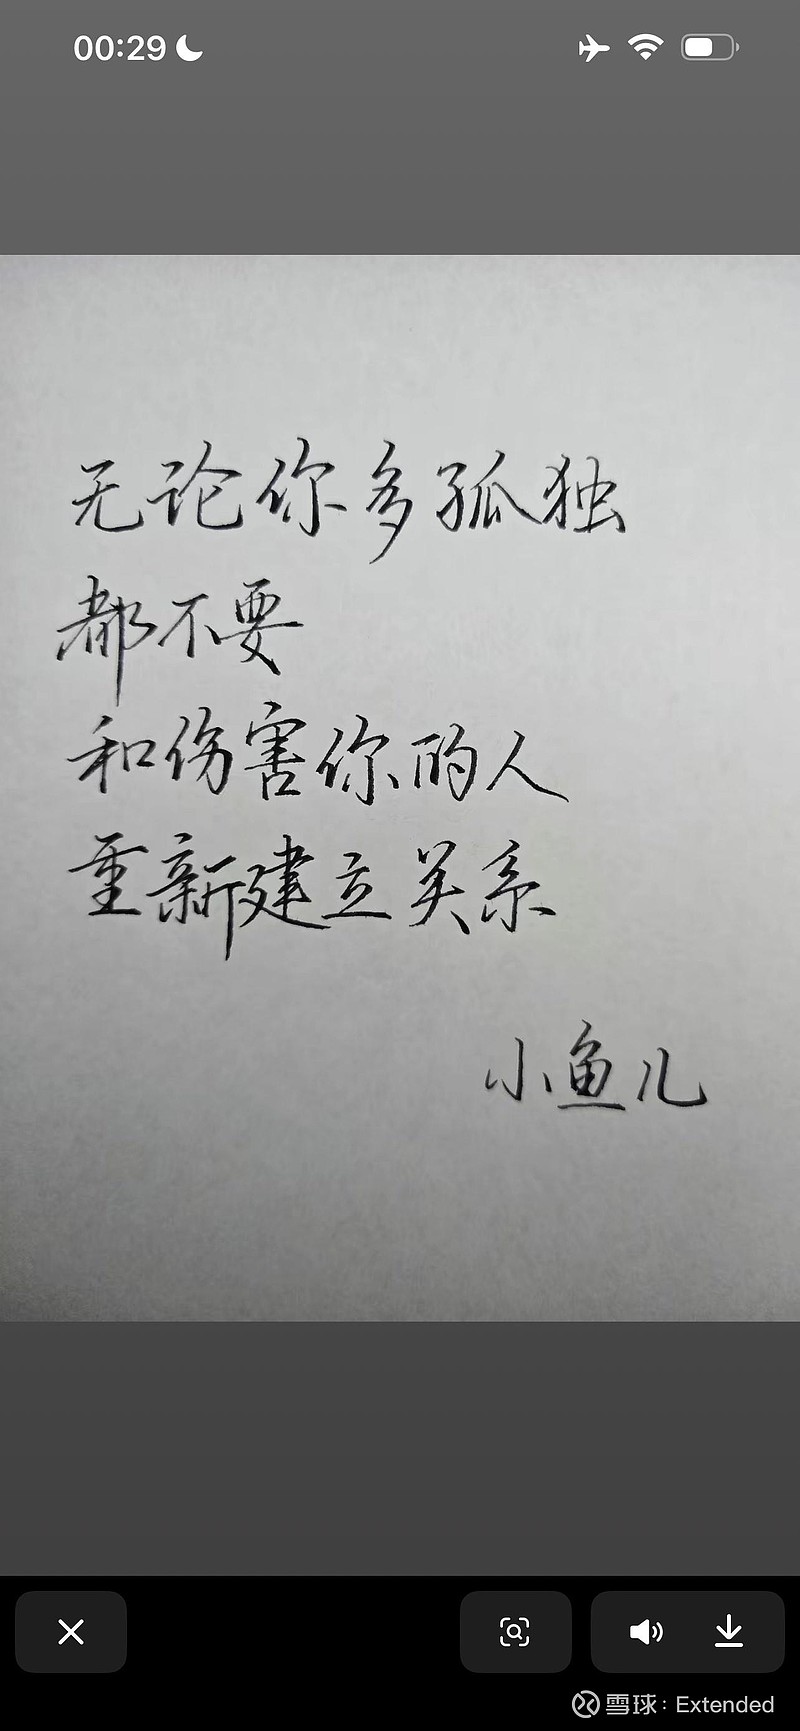 00:29
无论你多孤独
都不要
和伤害你的人
重新建立关系
小鱼儿
雪球：Extended